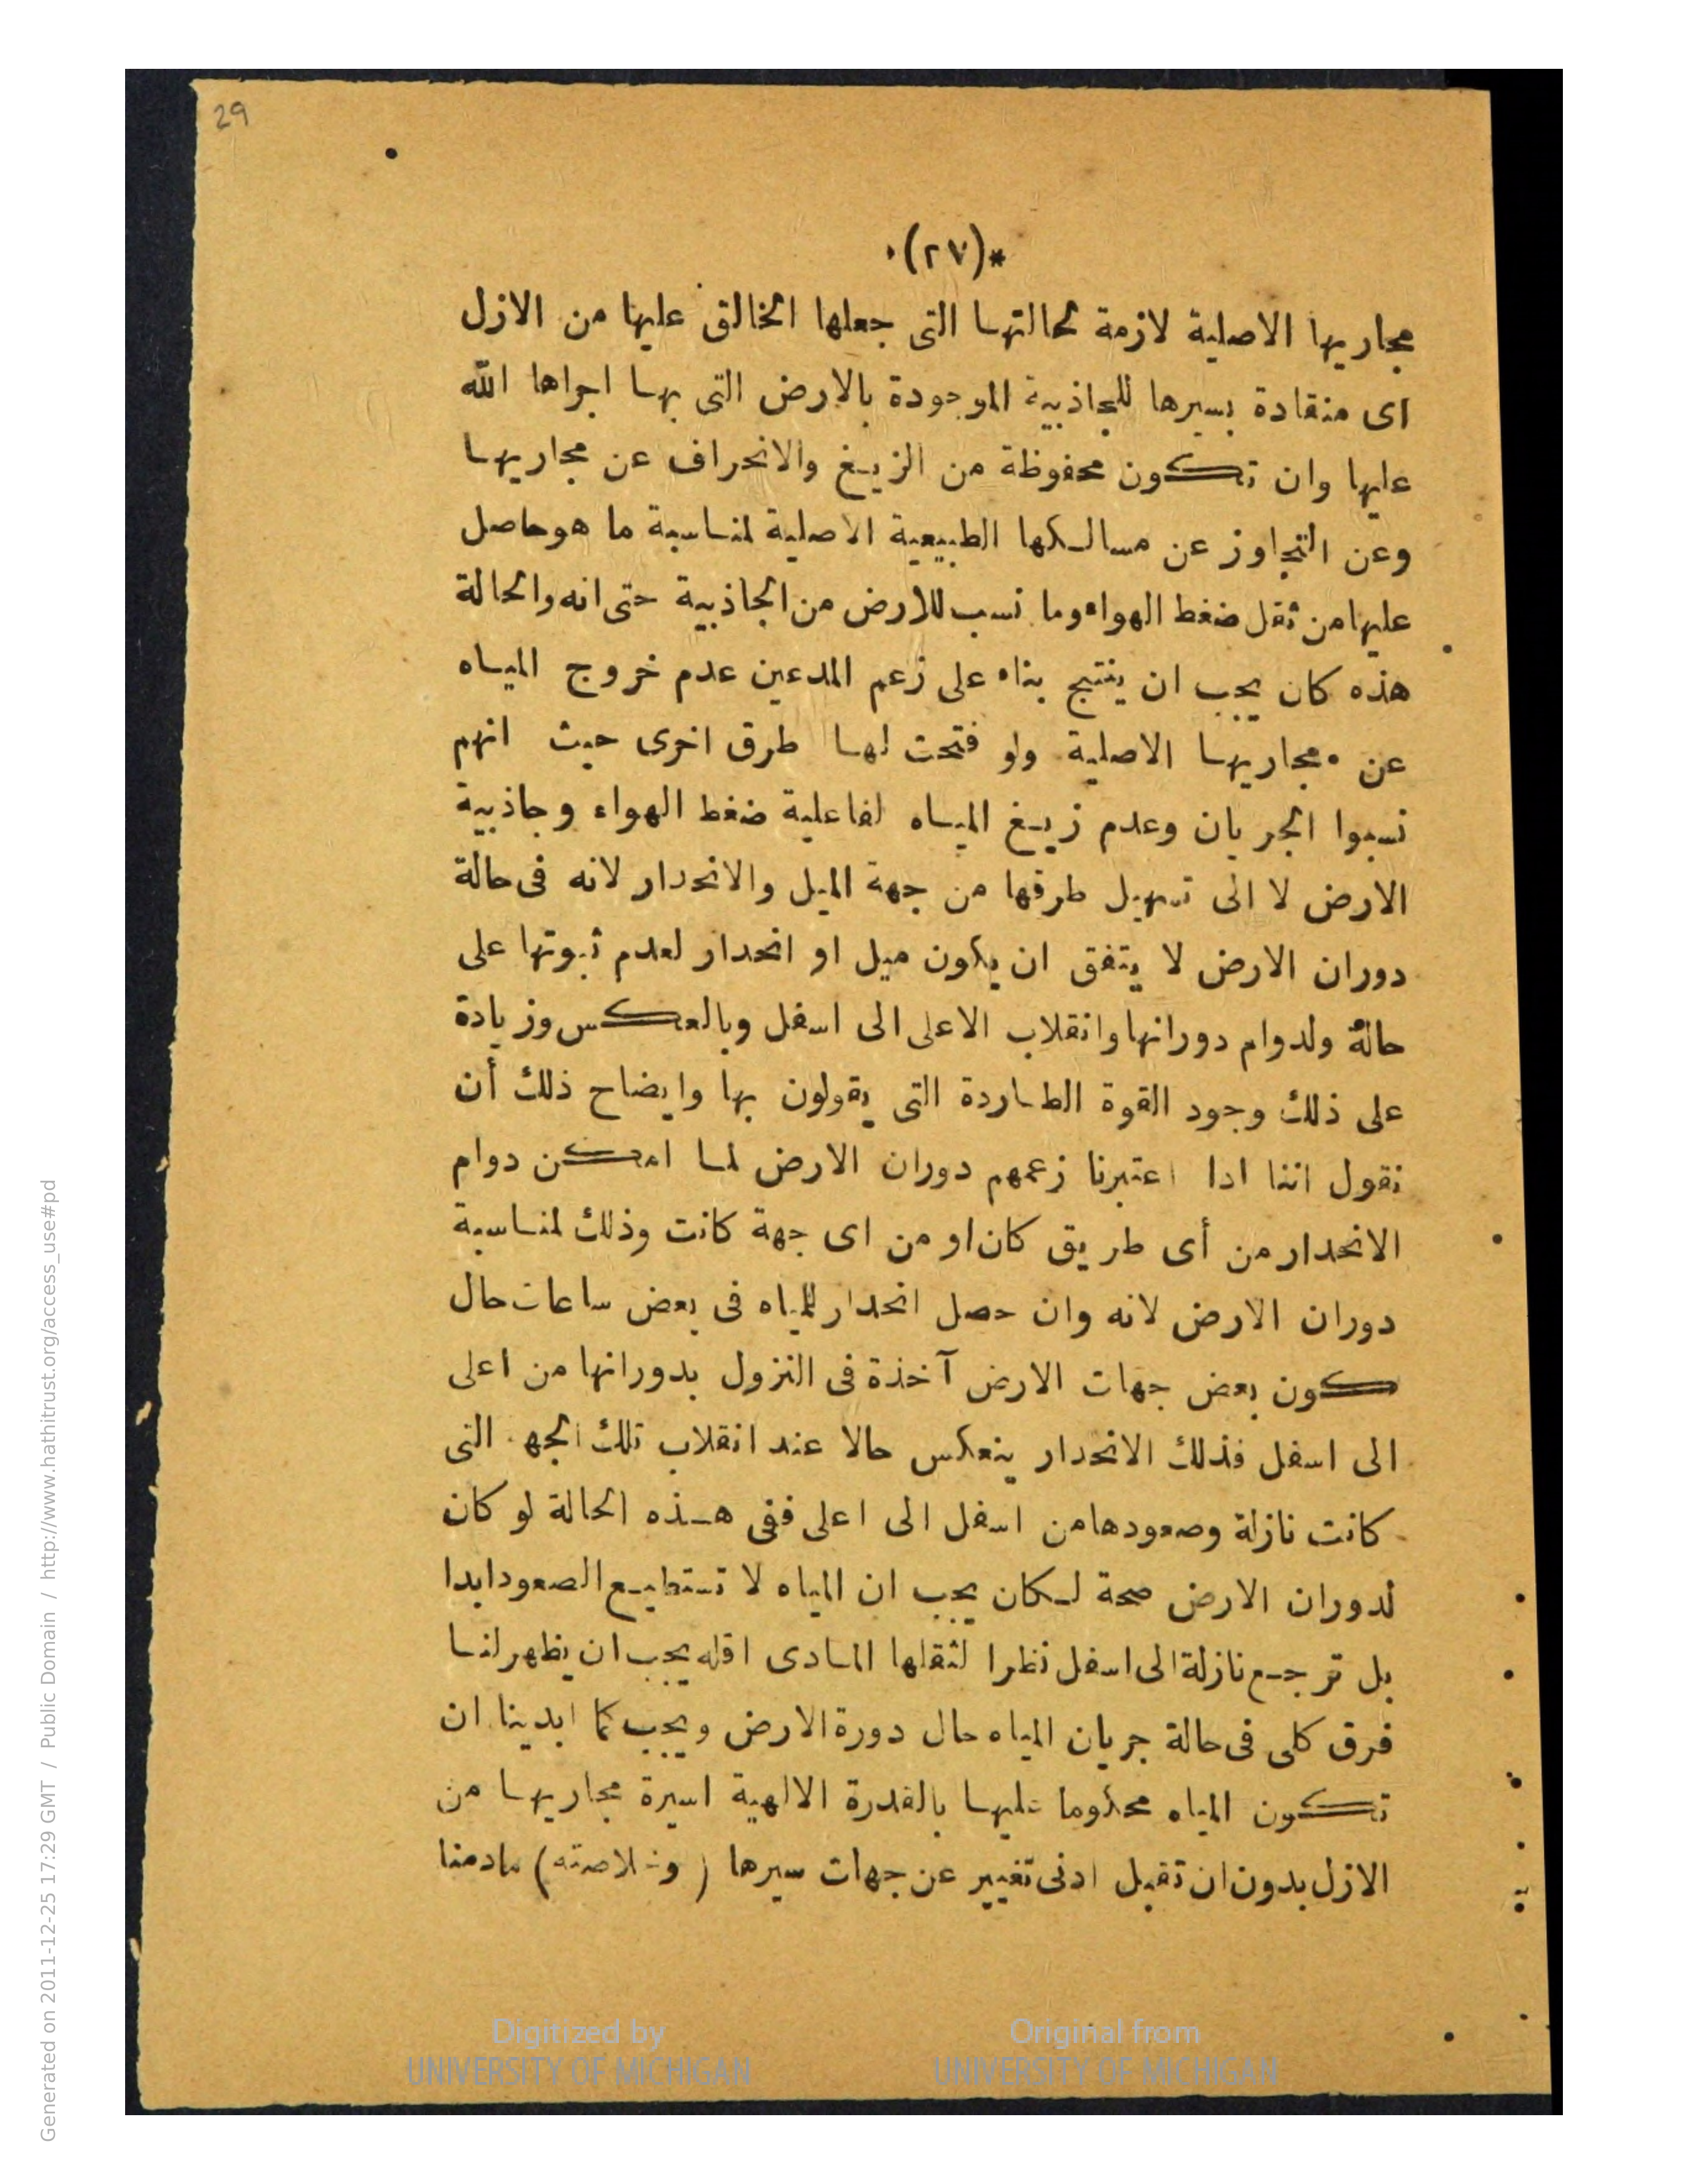 29
*(٢٧)*
مجاريها الاصلية لازمة لحالتها التى جعلها الخالق عليها من الازل
اى منقادة بسيرها للجاذبية الموجودة بالارض التى بها اجراها الله
عليها وان تكون محفوظة من الزيغ والانحراف عن مجاريها
وعن التجاوز عن مسالكها الطبيعية الاصلية لمناسبة ما هو حاصل
عليها من ثقل ضغط الهواء وما نسب للارض من الجاذبية حتى انه والحالة
هذه كان يجب ان ينتج بناء على زعم المدعين عدم خروج المياه
عن مجاريها الاصلية ولو فتحت لها طرق اخرى حيث انهم
نسبوا الجريان وعدم زيغ المياه لفاعلية ضغط الهواء وجاذبية
الارض لا الى تسهيل طرقها من جهة الميل والانحدار لانه فى حالة
دوران الارض لا يتفق ان يكون ميل او انحدار لعدم ثبوتها على
حالة ولدوام دورانها وانقلاب الاعلى الى اسفل وبالعكس وزيادة
على ذلك وجود القوة الطاردة التى يقولون بها وايضاح ذلك أن
نقول اننا اذا اعتبرنا زعمهم دوران الارض لما امكن دوام
الانحدار من أى طريق كان او من اى جهة كانت وذلك لمناسبة
دوران الارض لانه وان حصل انحدار للمياه فى بعض ساعات حال
كون بعض جهات الارض آخذة فى النزول بدورانها من اعلى
الى اسفل فذلك الانحدار ينعكس حالا عند انقلاب تلك الجهة التى
كانت نازلة وصعودها من اسفل الى اعلى ففى هذه الحالة لو كان
لدوران الارض صحة لكان يجب ان المياه لا تستطيع الصعود ابدا
بل ترجع نازلة الى اسفل نظرا لثقلها المادى اقله يجب ان يظهر لنا
فرق كلى فى حالة جريان المياه حال دورة الارض ويجب كما ابدينا ان
تكون المياه محكوما عليها بالقدرة الالهية اسيرة مجاريها من
الازل بدون ان تقبل ادنى تغيير عن جهات سيرها (وخلاصته) مادمنا
Digitized by
UNIVERSITY OF MICHIGAN
Original from
UNIVERSITY OF MICHIGAN
Generated on 2011-12-25 17:29 GMT / Public Domain / http://www.hathitrust.org/access_use#pd